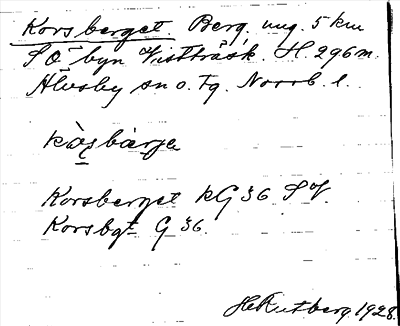 Korsberget. Berg. ung. 5 km
SO byn Vistträsk. H. 296 m.
Älvsby sn o. tg. Norrb. l.
Korsberget kG 36 SV.
Korsbgt G 36.
H Rutberg 1928.